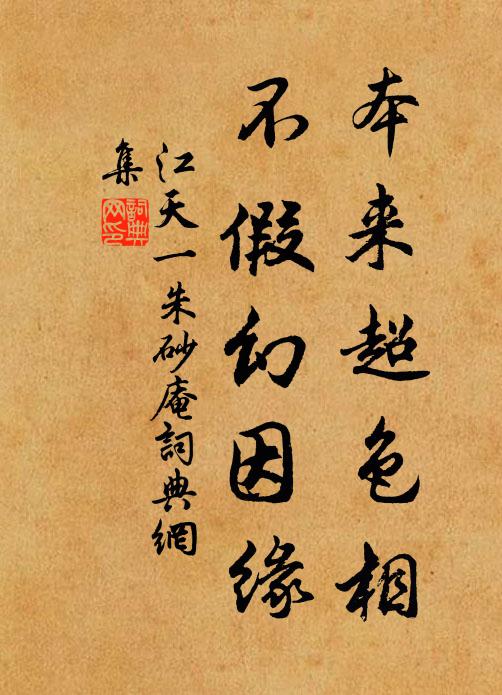 本来超色相
不假幻因缘
江天一朱砂庵詞典網
集
詞典
网印